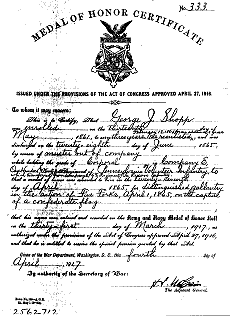 No. 333
MEDAL OF HONOR CERTIFICATE
ISSUED UNDER THE PROVISIONS OF THE ACT OF CONGRESS APPROVED APRIL 27, 1916
To whom it may concern:
This is to Certify, That George J. Shopp
enrolled on the thirtieth day of
May, 1861, to
discharged on the twenty eighth day of June, 1865,
by reason of muster out of company
while holding the grade of Corporal in Company E,
Pennsylvania Volunteer Infantry; to
the twenty seventh
day of April, 1865, for distinguished gallantry
in the action at Five Forks, April 1, 1865, on the capture
of a confederate flag
that his name was entered and recorded on the Army and Navy Medal of Honor Roll
on the thirty-first day of March, 1917, as
authorized under the provisions of the Act of Congress approved April 27, 1916,
and that he is entitled to receive the special pension granted by that Act.
Given at the War Department, Washington, D. C., this fourth day of
April, 1917.
By authority of the Secretary of War:
The Adjutant General.
2562712